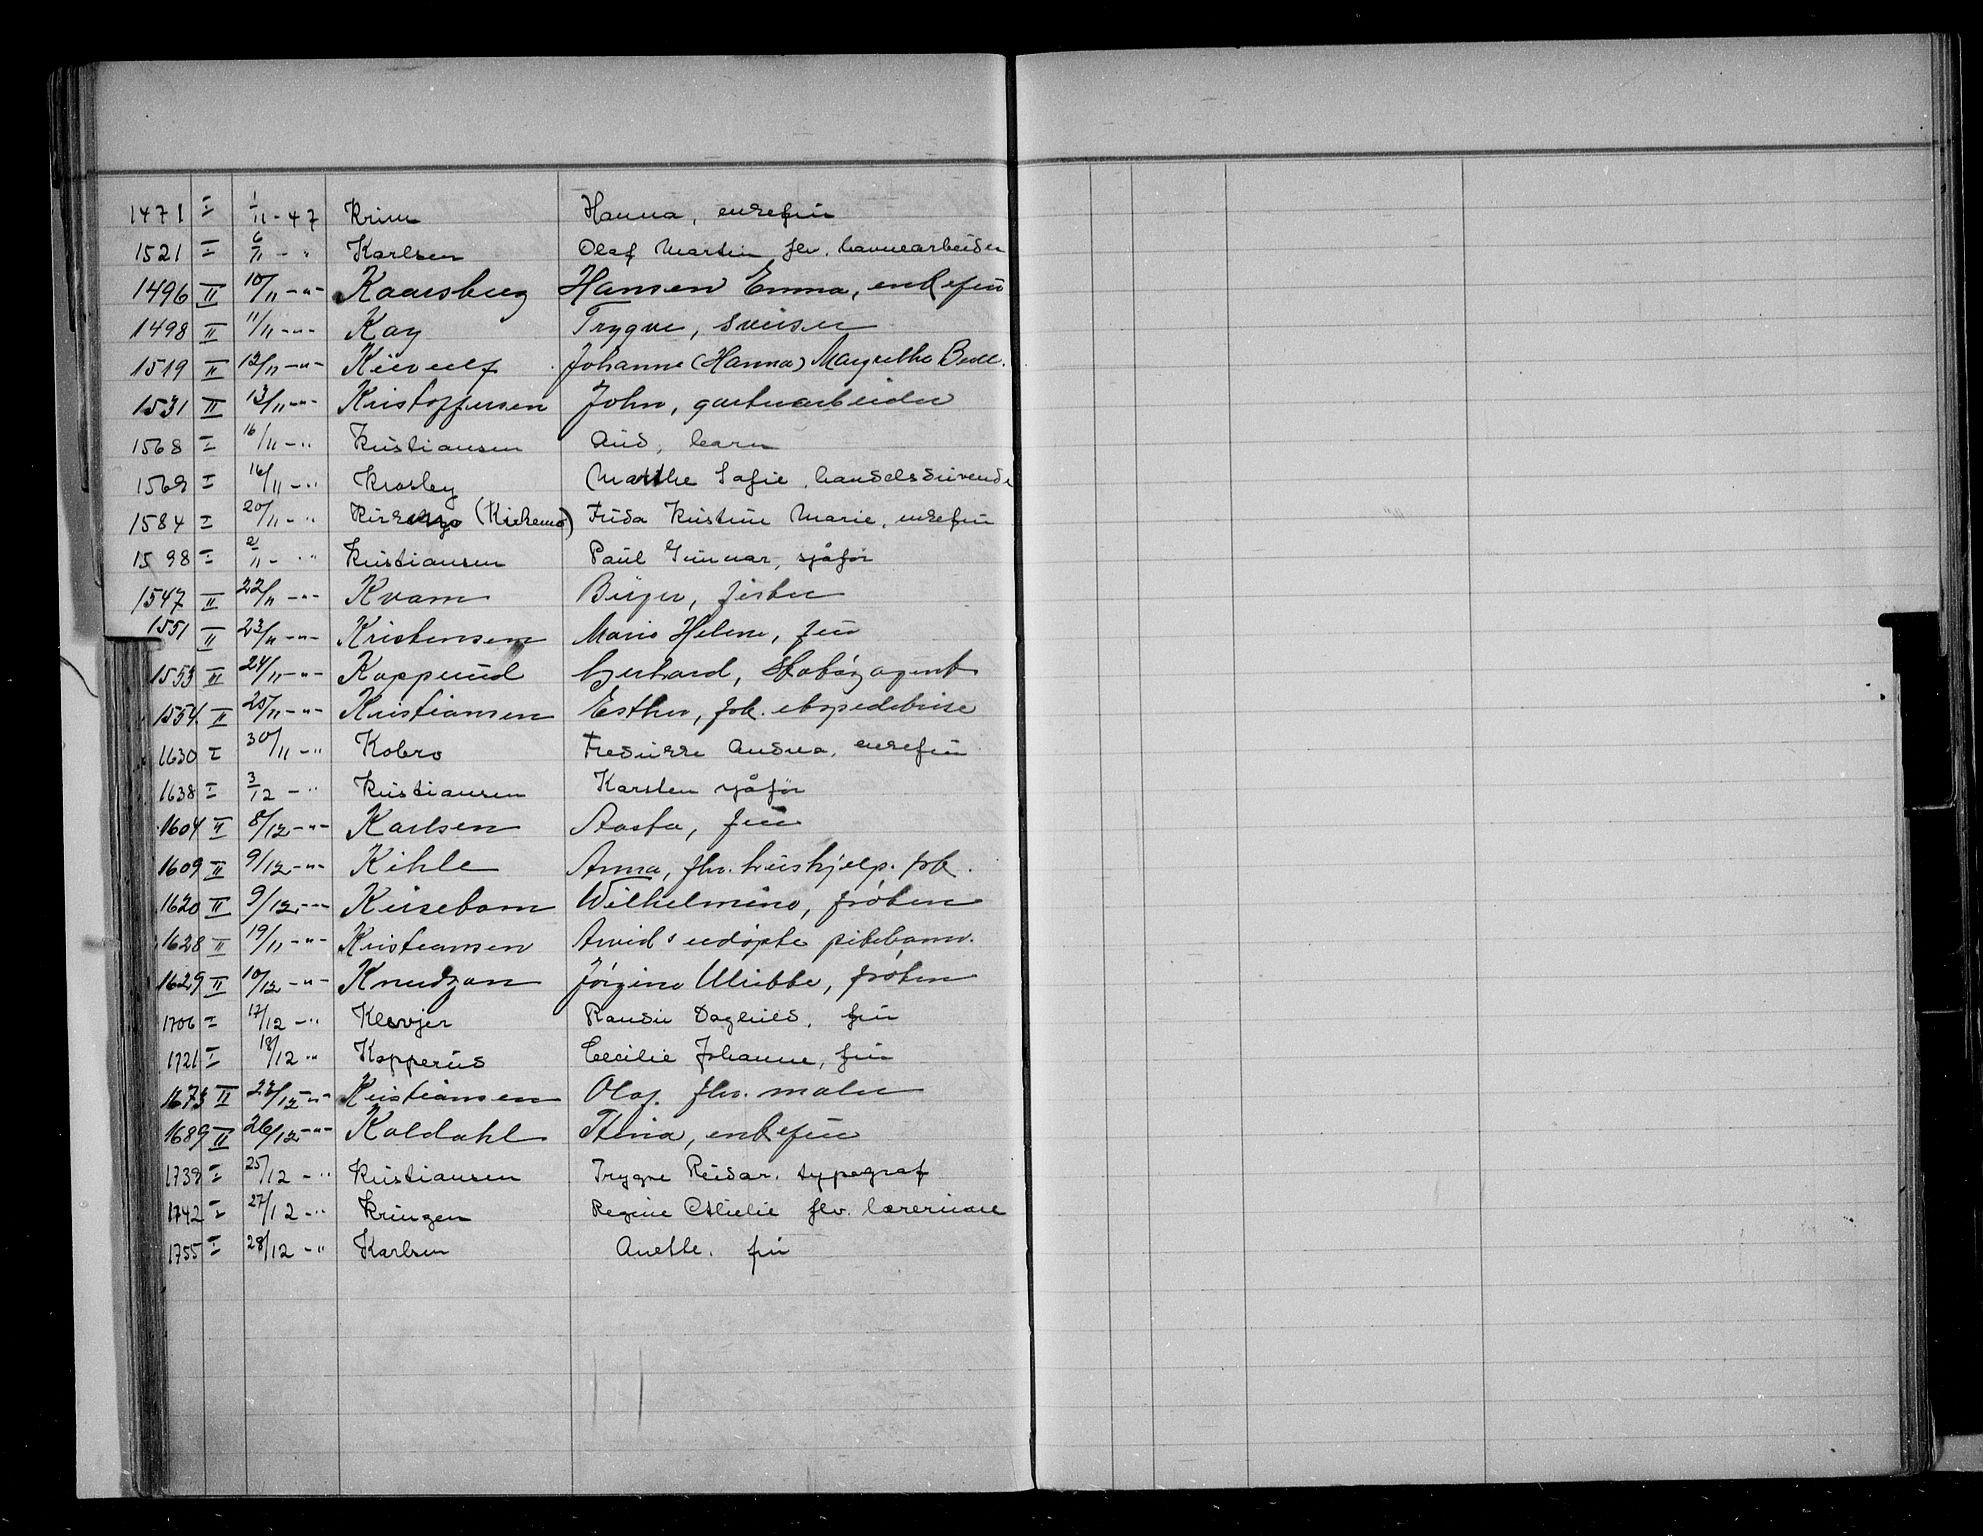 1471 I 1/11-47 Krim Hanna, enkefru
1521 I 6/11 - " Karlsen Olaf Martin fhv. havnearbeider
1496 II 10/11 -"- Kaarsberg Hansen Emma, enkefru
1498 II 11/11 -"- Kay Trygve, sveiser
1519 II 12/11 -"- Johanne (Hanna) Margrethe
1531 II 13/11 -"- Kristoffersen John, gartnerarbeider
1568 I 16/11 - " Kristiansen Aud, barn
1569 I 16/11 - " Krosby Marthe Sofie, handelsdrivende
1584 I 20/11 - " (Kirkemo) Frida Kristine Marie, enkefru
1598 I 2/11 - " Kristiansen Paul Gunnar, sjåfør
1547 II 22/11 -"- Kvam Birger, fisker
1551 II 23/11 -"- Kristensen Marie Helene, fru
1553 II 24/11 -"- Kopperud Gerhard, skotøyagent
1554 II 25/11 -"- Kristiansen Esther, frk. ekspeditrise
1630 I 30/11 - " Kobro Fredrikke Andrea, enkefru
1638 I 3/12 - " Kristiansen Karsten sjåfør
1604 II 8/12 -"- Karlsen Aasta, fru
1609 II 9/12 -"- Kihle Anna, fhv. hushjelp. frk.
1620 II 9/12 -"- Kirsebom Wilhelmine, frøken
1628 II 19/11 -"- Kristiansen Arvids udøpte pikebarn.
1629 II 10/12 -"- Knudzon Jørgine Ulrikke, frøken
1706 I 17/12 - " Klevjer Randi Dagfrid, fru
1721 I 18/12 " Kopperud Cecilie Johanne, fru
1673 II 23/12 -"- Kristiansen Olaf. fhv. maler
1689 II 26/12 -"- Koldahl Thina, enkefru
1739 I 25/12 - " Kristiansen Trygve Reidar. typograf
1742 I 27/12 - " Kringen Regine Othilie fhv. lærerinne
1755 I 28/12 - " Karlsen Anette. fru